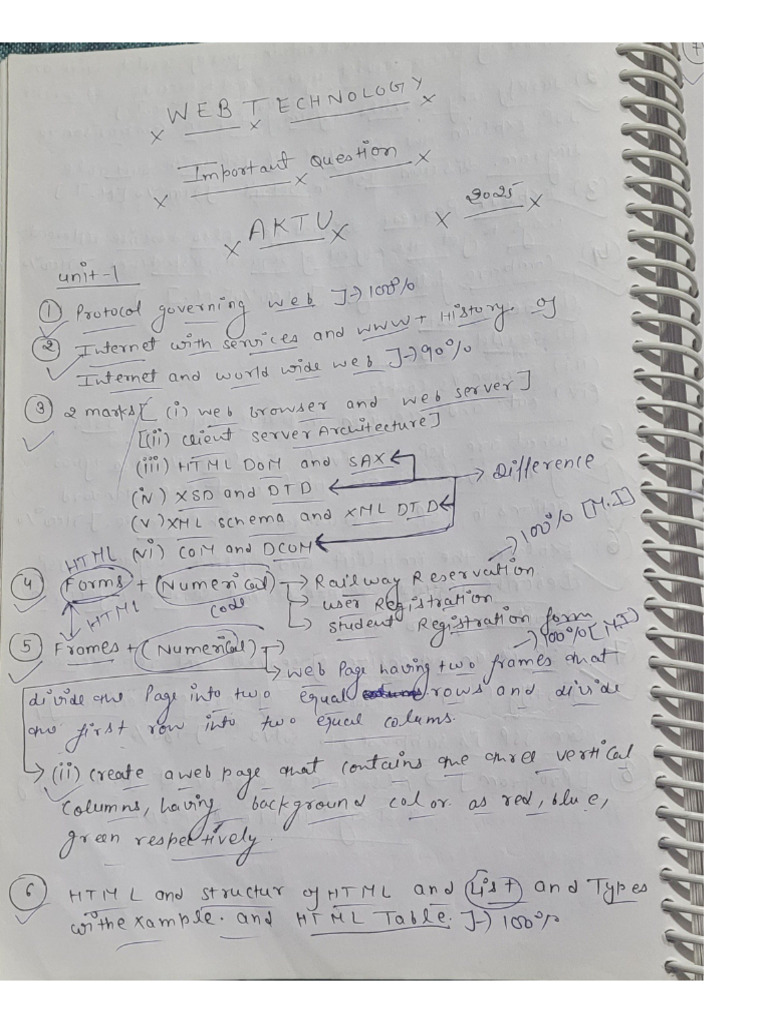 WEB TECHNOLOGY
Important Question
AKTU 2025
unit-1
① Protocol governing web ]→ 100%
② Internet with services and WWW + History of
Internet and world wide web ]→ 90%
③ 2 marks [ (i) web browser and web server]
[(ii) client server Architecture]
(iii) HTML DOM and SAX
(iv) XSD and DTD → Difference
(v) XML schema and XML DTD
HTML (vi) COM and DCOM
④ Forms + (Numerical) → Railway Reservation → 100% [M.I]
HTML code → user Registration
→ student Registration form
⑤ Frames + (Numerical) → → 100% [M.I]
→ web Page having two frames that
divide the Page into two equal rows and divide
the first row into two equal colums.
→ (ii) create a web page that contains the three vertical
columns, having background color as red, blue,
green respectively.
⑥ HTML and structur of HTML and List and Types
withexample. and HTML Table. ]→ 100%
7